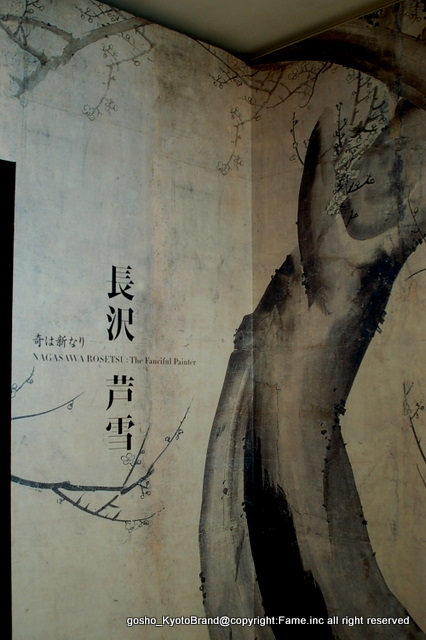 長沢 芦雪
奇は新なり
NAGASAWA ROSETSU : The Fanciful Painter
gosho_KyotoBrand@copyright:Fame.inc all right reserved